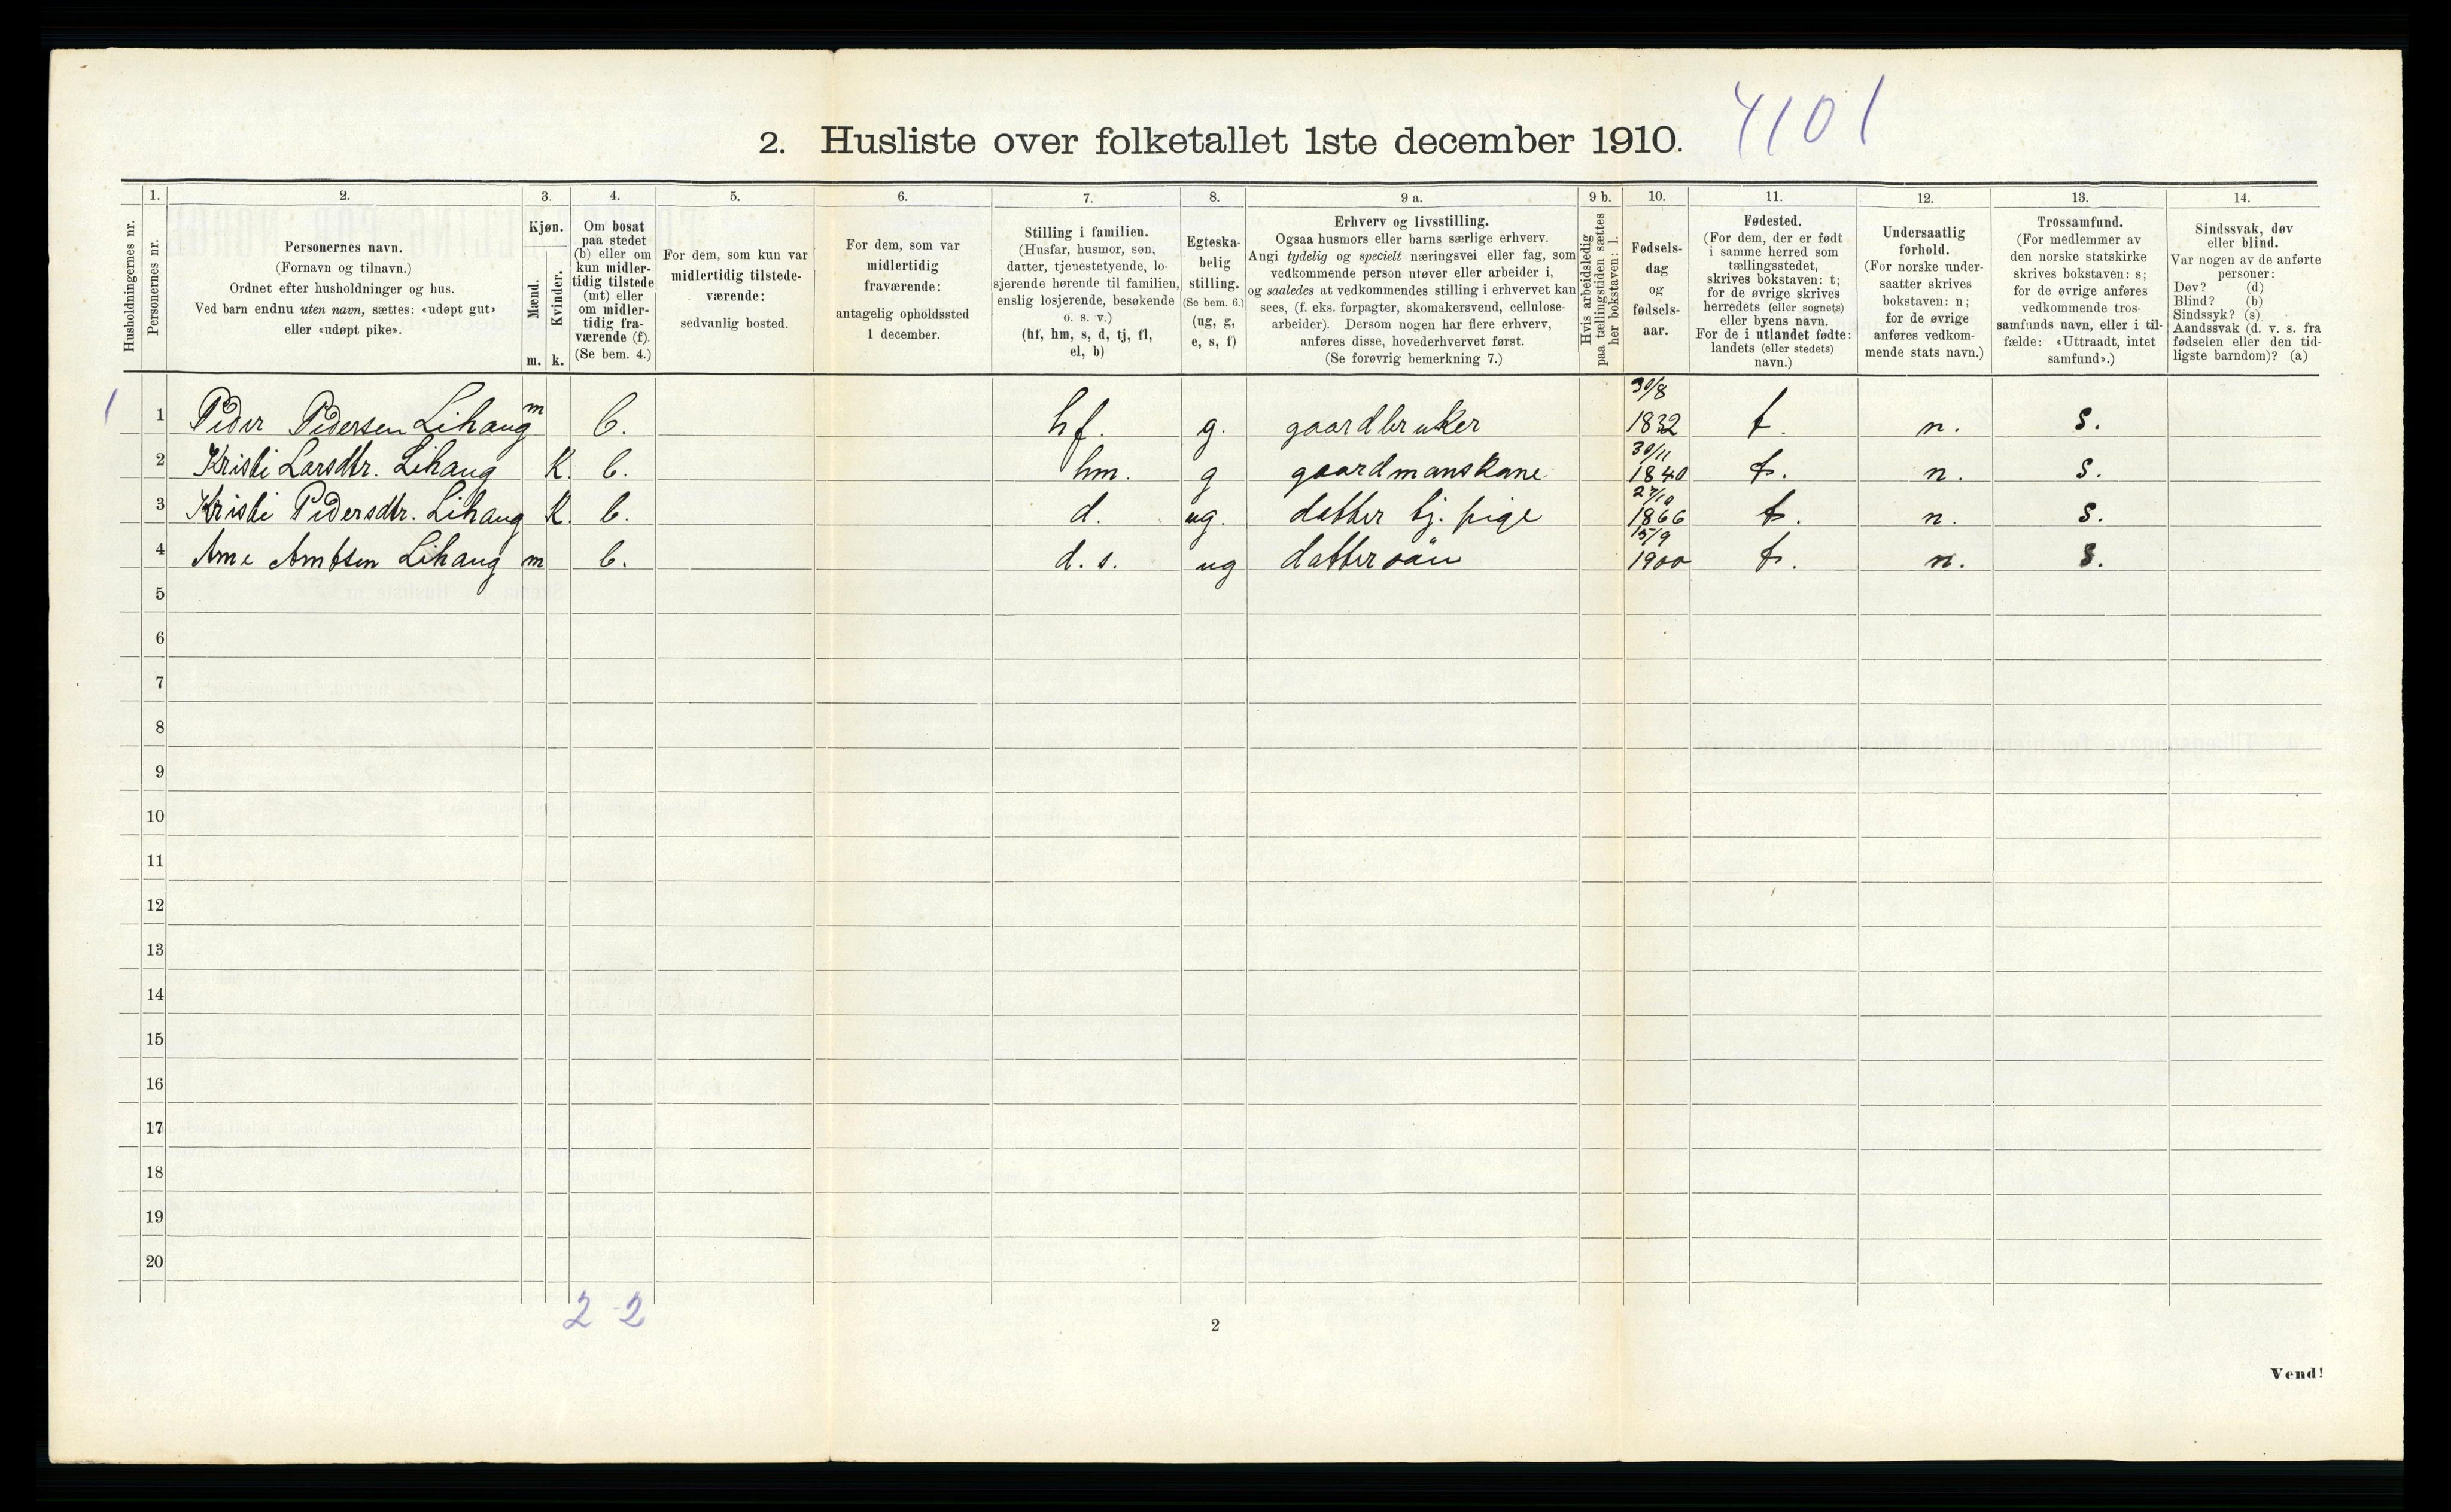 4101
2. Husliste over folketallet 1ste december 1910.
Husholdningernes nr.
1.
Personernes nr.
2.
Personernes navn.
(Fornavn og tilnavn.)
Ordnet efter husholdninger og hus.
Ved barn endnu uten navn, sættes: «udøpt gut»
eller «udøpt pike».
3.
Kjøn.
Mænd.
Kvinder.
m. k.
4.
Om bosat
paa stedet
(b) eller om
kun midler-
tidig tilstede
(mt) eller
om midler-
tidig fra-
værende (f).
(Se bem. 4.)
5.
For dem, som kun var
midlertidig tilstede-
værende:
sedvanlig bosted.
6.
For dem, som var
midlertidig
fraværende:
antagelig opholdssted
1 december.
7.
Stilling i familien.
(Husfar, husmor, søn,
datter, tjenestetyende, lo-
sjerende hørende til familien,
enslig losjerende, besøkende
o. s. v.)
(hf, hm, s, d, tj, fl,
el, b)
8.
Egteska-
belig
stilling.
(Se bem. 6.)
(ug, g,
e, s, f)
9 a.
Erhverv og livsstilling.
Ogsaa husmors eller barns særlige erhverv.
Angi tydelig og specielt næringsvei eller fag, som
vedkommende person utøver eller arbeider i,
og saaledes at vedkommendes stilling i erhvervet kan
sees, (f. eks. forpagter, skomakersvend, cellulose-
arbeider). Dersom nogen har flere erhverv,
anføres disse, hovederhvervet først.
(Se forøvrig bemerkning 7.)
9 b.
Hvis arbeidsledig
paa tællingstiden sættes
her bokstaven: l.
10.
Fødsels-
dag
og
fødsels-
aar.
11.
Fødested.
(For dem, der er født
i samme herred som
tællingsstedet,
skrives bokstaven: t;
for de øvrige skrives
herredets (eller sognets)
eller byens navn.
For de i utlandet fødte:
landets (eller stedets)
navn.)
12.
Undersaatlig
forhold.
(For norske under-
saatter skrives
bokstaven: n;
for de øvrige
anføres vedkom-
mende stats navn.)
13.
Trossamfund.
(For medlemmer av
den norske statskirke
skrives bokstaven: s;
for de øvrige anføres
vedkommende tros-
samfunds navn, eller i til-
fælde: «Uttraadt, intet
samfund».)
14.
Sindssvak, døv
eller blind.
Var nogen av de anførte
personer:
Døv? (d)
Blind? (b)
Sindssyk? (s)
Aandssvak (d. v. s. fra
fødselen eller den tid-
ligste barndom)? (a)
1 1 Peder Pedersen Lihaug m b. hf. g. gaardbruker 30/8 1832 t. n. s.
2 Kristi Larsdtr. Lihaug K. b. hm. g gaardmanskane 30/11 1840 t. n. s.
3 Kristi Pedersdtr. Lihaug K. b. d. ug. datter tj. pige 27/10 1866 t. n. s.
4 Arne Arntsen Lihaug m b. d. s. ug dattersön 15/9 1900 t. n. s.
5
6
7
8
9
10
11
12
13
14
15
16
17
18
19
20
2 - 2
2
Vend!